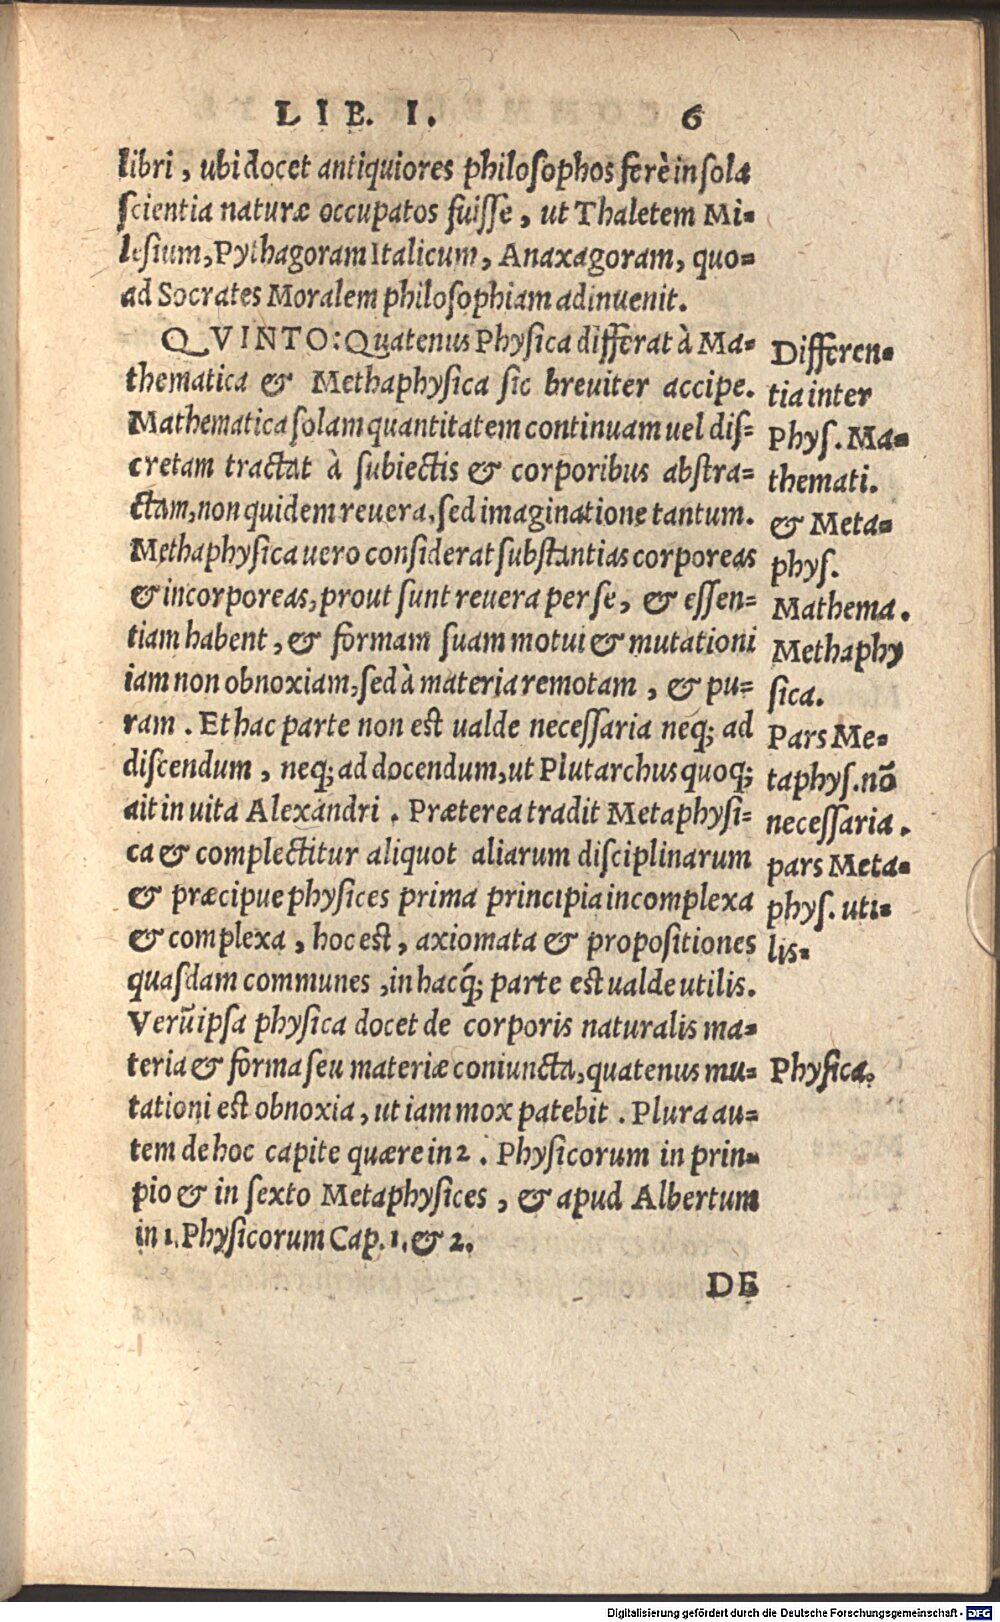 LIB. I. 6
libri, ubi docet antiquiores philosophos ferè in sola
scientia naturæ occupatos fuisse, ut Thaletem Mi-
lesium, Pythagoram Italicum, Anaxagoram, quo-
ad Socrates Moralem philosophiam adinuenit.
QVINTO: Quatenus Physica differat à Ma-
thematica & Methaphysica sic breuiter accipe.
Mathematica solam quantitatem continuam uel dis-
cretam tractat à subiectis & corporibus abstra-
ctam, non quidem reuera, sed imaginatione tantum.
Methaphysica uero considerat substantias corporeas
& incorporeas, prout sunt reuera per se, & essen-
tiam habent, & formam suam motui & mutationi
iam non obnoxiam, sed à materia remotam, & pu-
ram. Et hac parte non est ualde necessaria neq; ad
discendum, neq; ad docendum, ut Plutarchus quoq;
ait in uita Alexandri. Præterea tradit Metaphysi-
ca & complectitur aliquot aliarum disciplinarum
& præcipue physices prima principia incomplexa
& complexa, hoc est, axiomata & propositiones
quasdam communes, in hacq́; parte est ualde utilis.
Verũ ipsa physica docet de corporis naturalis ma-
teria & forma seu materiæ coniuncta, quatenus mu-
tationi est obnoxia, ut iam mox patebit. Plura au-
tem de hoc capite quære in 2. Physicorum in prin-
pio & in sexto Metaphysices, & apud Albertum
in 1. Physicorum Cap. 1. & 2.
DE
Differen-
tia inter
Phys. Ma-
themati.
& Meta-
phys.
Mathema.
Methaphy
sica.
Pars Me-
taphys. nõ
necessaria.
pars Meta-
phys. uti-
lis.
Physica.
Digitalisierung gefördert durch die Deutsche Forschungsgemeinschaft - DFG